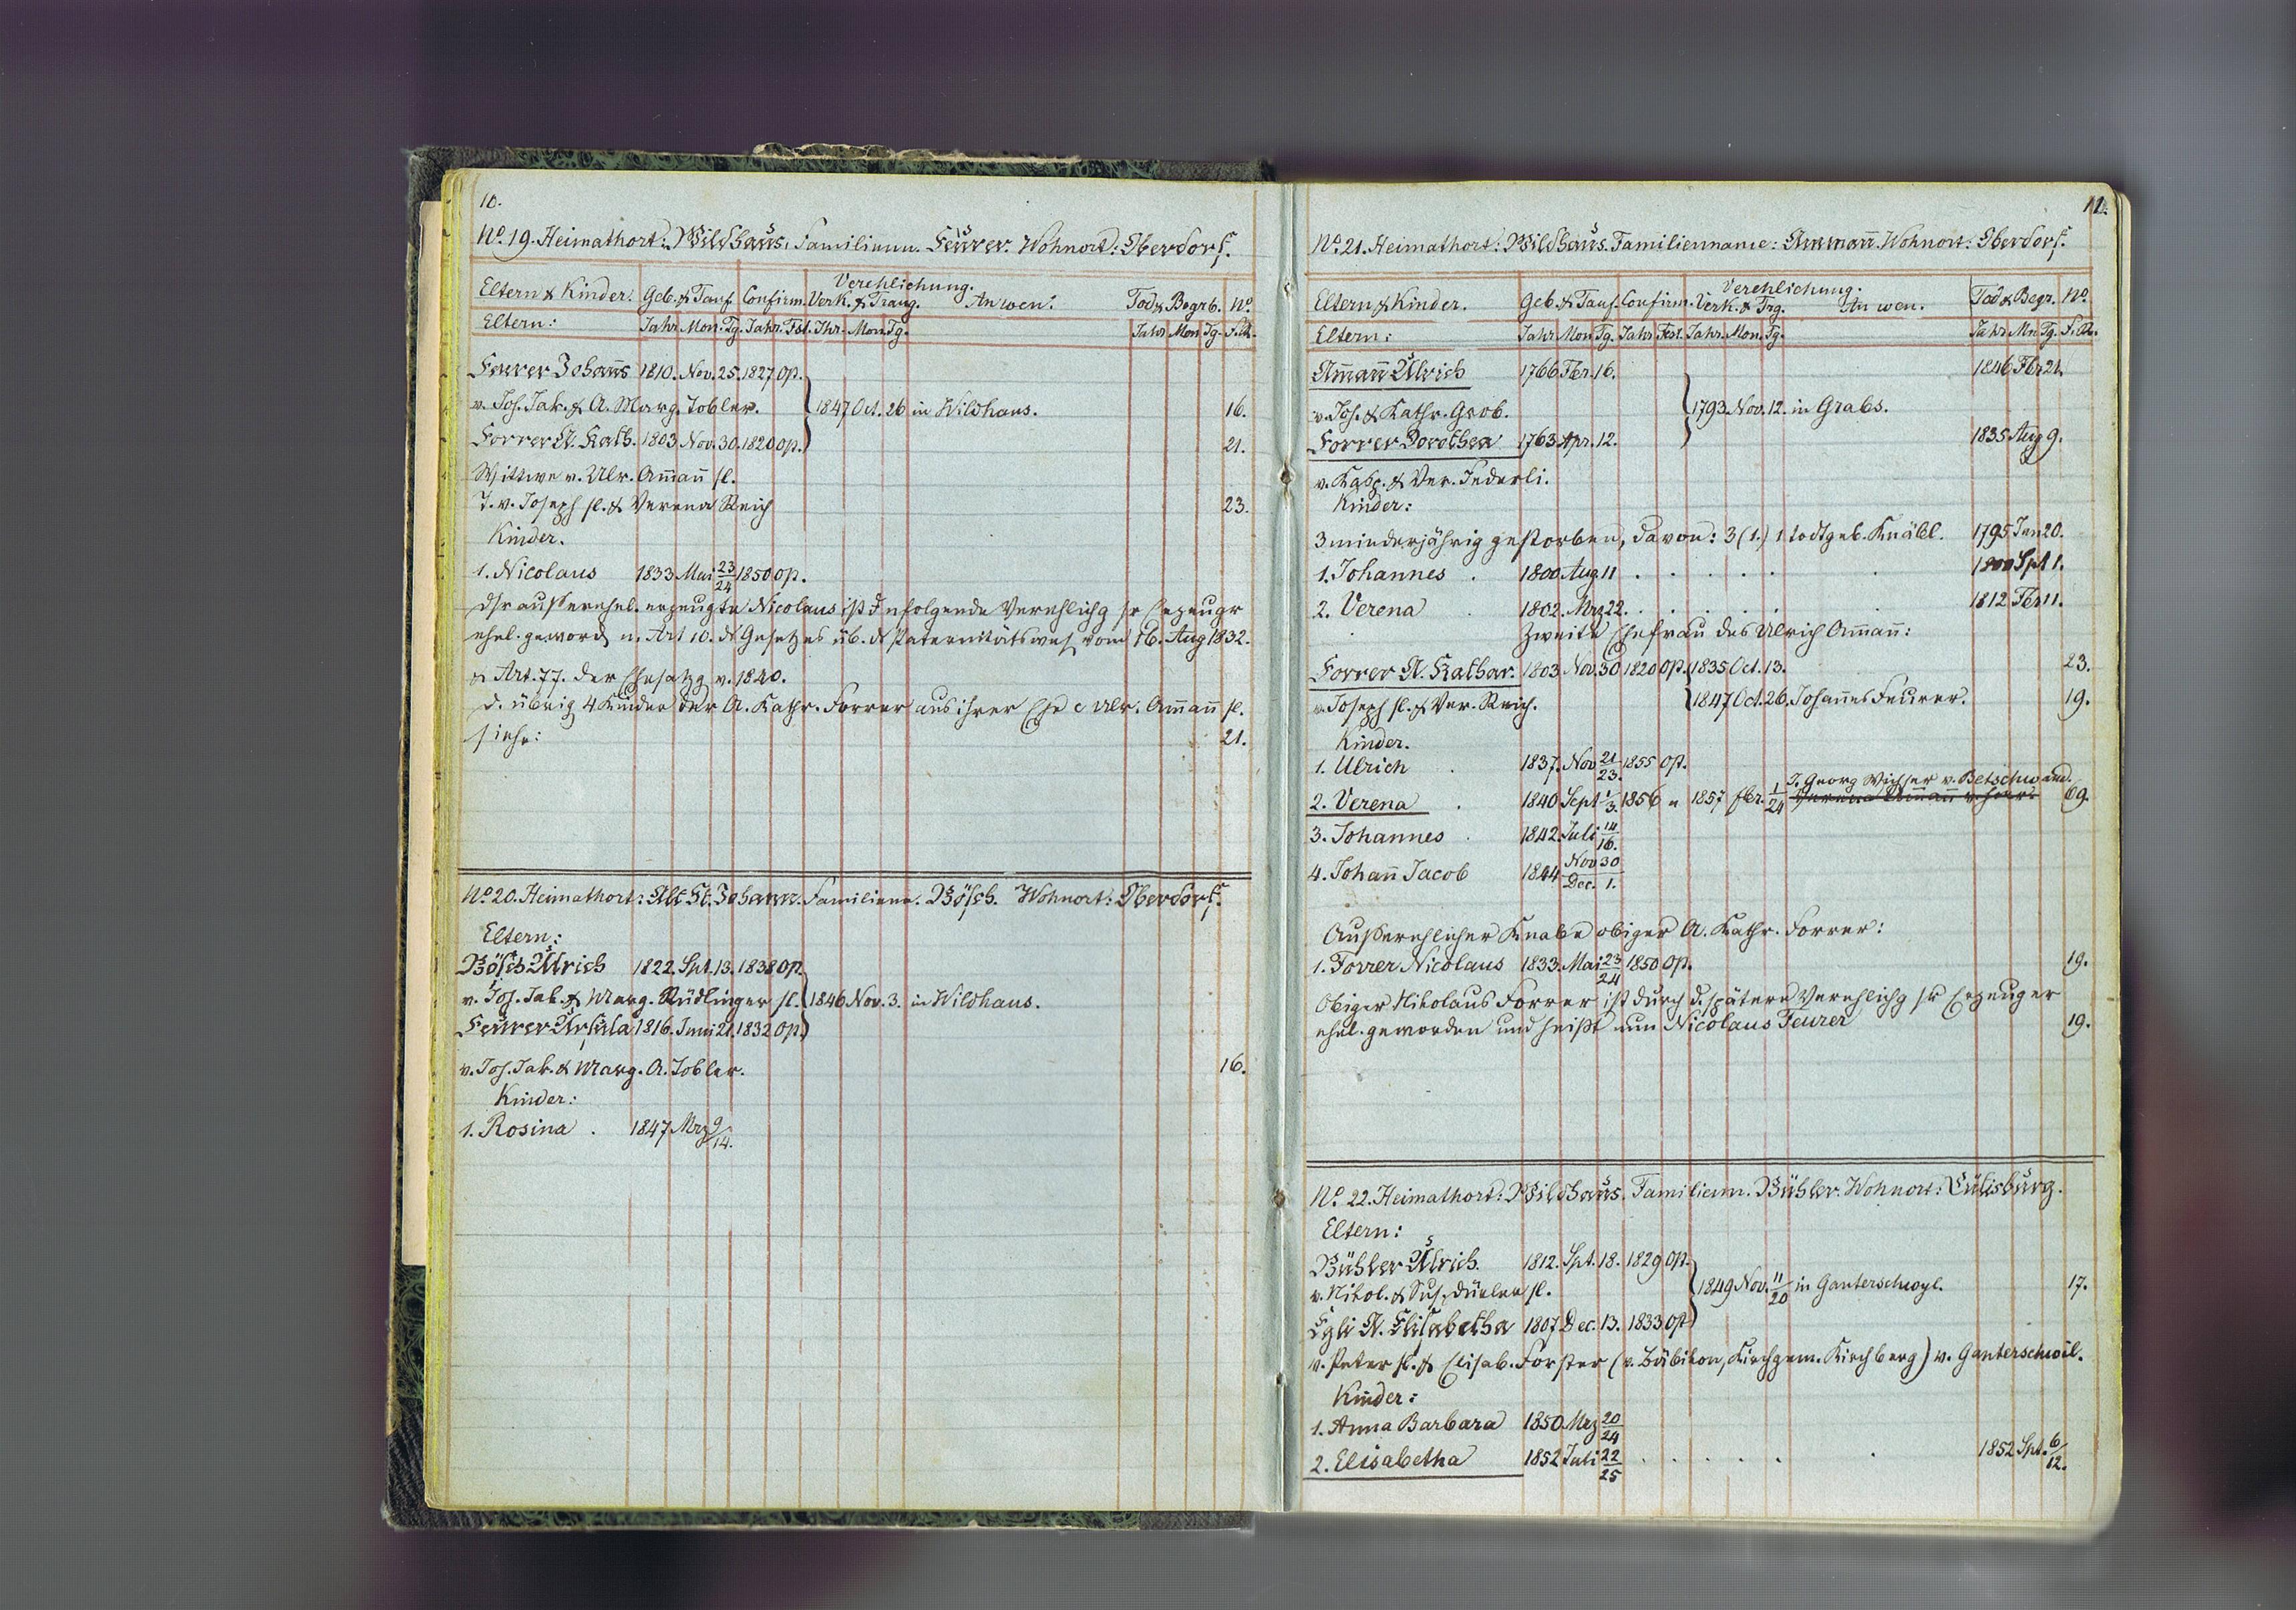 10.
No. 19. Heimathort: Wildhaus. Familienn. Feurer. Wohnort: Oberdorf.
Eltern & Kinder. Geb. & Tauf. Confirm. Verehlichung. Verk. & Traug. An wen: Tod & Begrb. No.
Eltern: Jahr Mon. Tg. Jahr. Fst. Jhr. Mon. Tg. Jahr Mon Tg. F.R.
Feurer Johañs 1810. Nov. 25. 1827 Op.
v. Joh. Jak. & A. Marg. Tobler. 1847 Oct. 26 in Wildhaus. 16.
Forrer A. Kath. 1803 Nov. 30. 1820 Op. 21.
Wittwe v. Ulr. Amañ sl.
T. v. Joseph sl. & Verena Reich 23.
Kinder.
1. Nicolaus 1833 Mai 23/24 1850 Op.
Dsr außerehel. erzeugte Nicolaus ist Infolgende Verehlichg sr Erzeugr
ehel. geword n. Art 10. d Gesetzes üb. d Paternitätswes vom 16. Aug 1832.
& Art. 77. der Ehesatzg v. 1840.
D. übrig 4 Kinder der A. Kathr. Forrer aus ihrer Ehe c Ulr. Amañ sl.
siehe: 21.
No. 20. Heimathort: Alt St. Johann. Familienn. Bösch. Wohnort: Oberdorf.
Eltern:
Bösch Ulrich 1822. Spt. 13. 1838 Op.
v. Joh. Jak. & Marg. Rüdlinger sl. 1846 Nov. 3. in Wildhaus.
Feurer Ursula 1816. Juni 21. 1832 Op.
v. Joh. Jak. & Marg. A. Tobler. 16.
Kinder:
1. Rosina . 1847 Mrz 9/14.
11.
No. 21. Heimathort: Wildhaus. Familienname: Ammañ. Wohnort: Oberdorf.
Eltern & Kinder. Geb. & Tauf. Confirm. Verehlichung. Verk. & Trg. An wen. Tod & Begr. No.
Eltern: Jahr Mon Tg. Jahr Fest. Jahr. Mon. Tg. Jahr Mn Tg. F.R.
Amañ Ulrich 1766 Fbr. 16. 1846 Fbr 21.
v. Joh. & Kathr. Grob. 1793. Nov. 12. in Grabs.
Forrer Dorothea 1763 Apr. 12. 1835 Aug 9.
v. Kasp. & Ver. Federli.
Kinder:
3 minderjährig gestorben, davon: 3 (1.) 1 todtgeb. Knäbl. 1795 Jan 20.
1. Johannes . 1800 Aug. 11 . . . . . 1800 Spt 1.
2. Verena . 1802. Mrz 22. . . . . . 1812 Fbr 11.
Zweite Ehefrau des Ulrich Amañ:
Forrer A. Kathar. 1803 Nov. 30 1820 Op. 1835 Oct. 13. 23.
v. Joseph sl. & Ver. Reich. 1847 Oct. 26. Johañes Feurer. 19.
Kinder.
1. Ulrich . 1837. Nov 21/23. 1855 Op.
2. Verena . 1840 Sept 1/3. 1856 " 1857 fbr. 1/24 J. Georg Wichser v. Betschwand. 69.
3. Johannes . 1842. Juli 14/16.
4. Johañ Jacob 1844 Nov 30/Dec. 1.
Außerehlicher Knabe obiger A. Kathr. Forrer:
1. Forrer Nicolaus 1833. Mai 23/24 1850 Op. 19.
Obiger Nikolaus Forrer ist durch d. spätere Verehlichg sr Erzeuger
ehel. geworden und heißt nun Nicolaus Feurer 19.
No. 22. Heimathort: Wildhaus. Familienn. Bühler. Wohnort: Lütisburg.
Eltern:
Bühler Ulrich. 1812. Spt. 18. 1829 Op.
v. Nikol. & Sus. Dürler sl. 1849 Nov. 11/20 in Ganterschwyl. 17.
Egli A. Elisabetha 1807 Dec. 13. 1833 Op
v. Peter sl. & Elisab. Forster (v. Bäbikon, Kirchgem. Kirchberg) v. Ganterschwil.
Kinder:
1. Anna Barbara 1850 Mrz 20/24
2. Elisabetha 1852 Juli 22/25 . . . . . . 1852 Spt. 6/12.